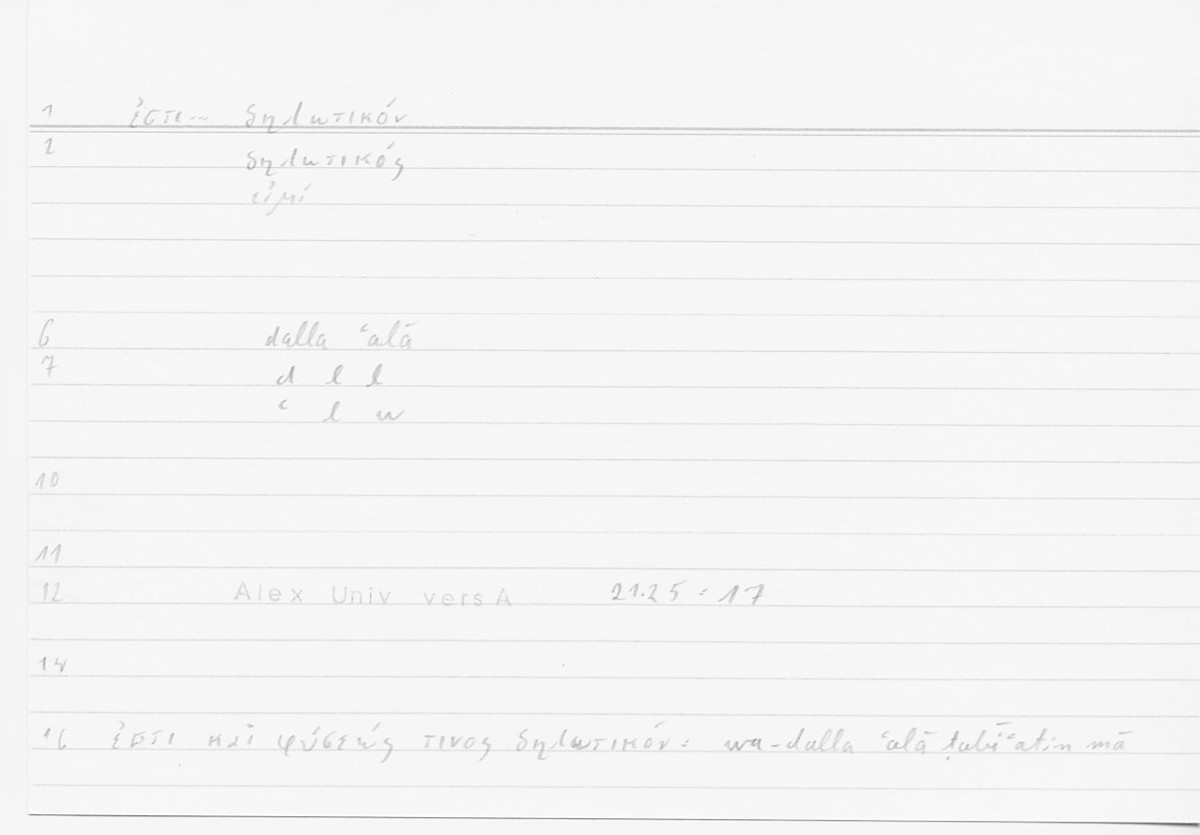 1 ἐστι... δηλωτικόν
2 δηλωτικός
εἰμί
6 dalla ʿalā
7 d l l
ʿ l w
10
11
12 Alex Univ vers A 21.25 : 17
14
16 ἐστι καὶ φύσεώς τινος δηλωτικόν: wa-dalla ʿalā ṭabīʿatin mā